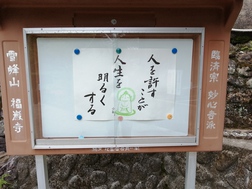 臨済宗 妙心寺派
人を許す
ことが
人生を
明るく
する
雪峰山 福巌寺